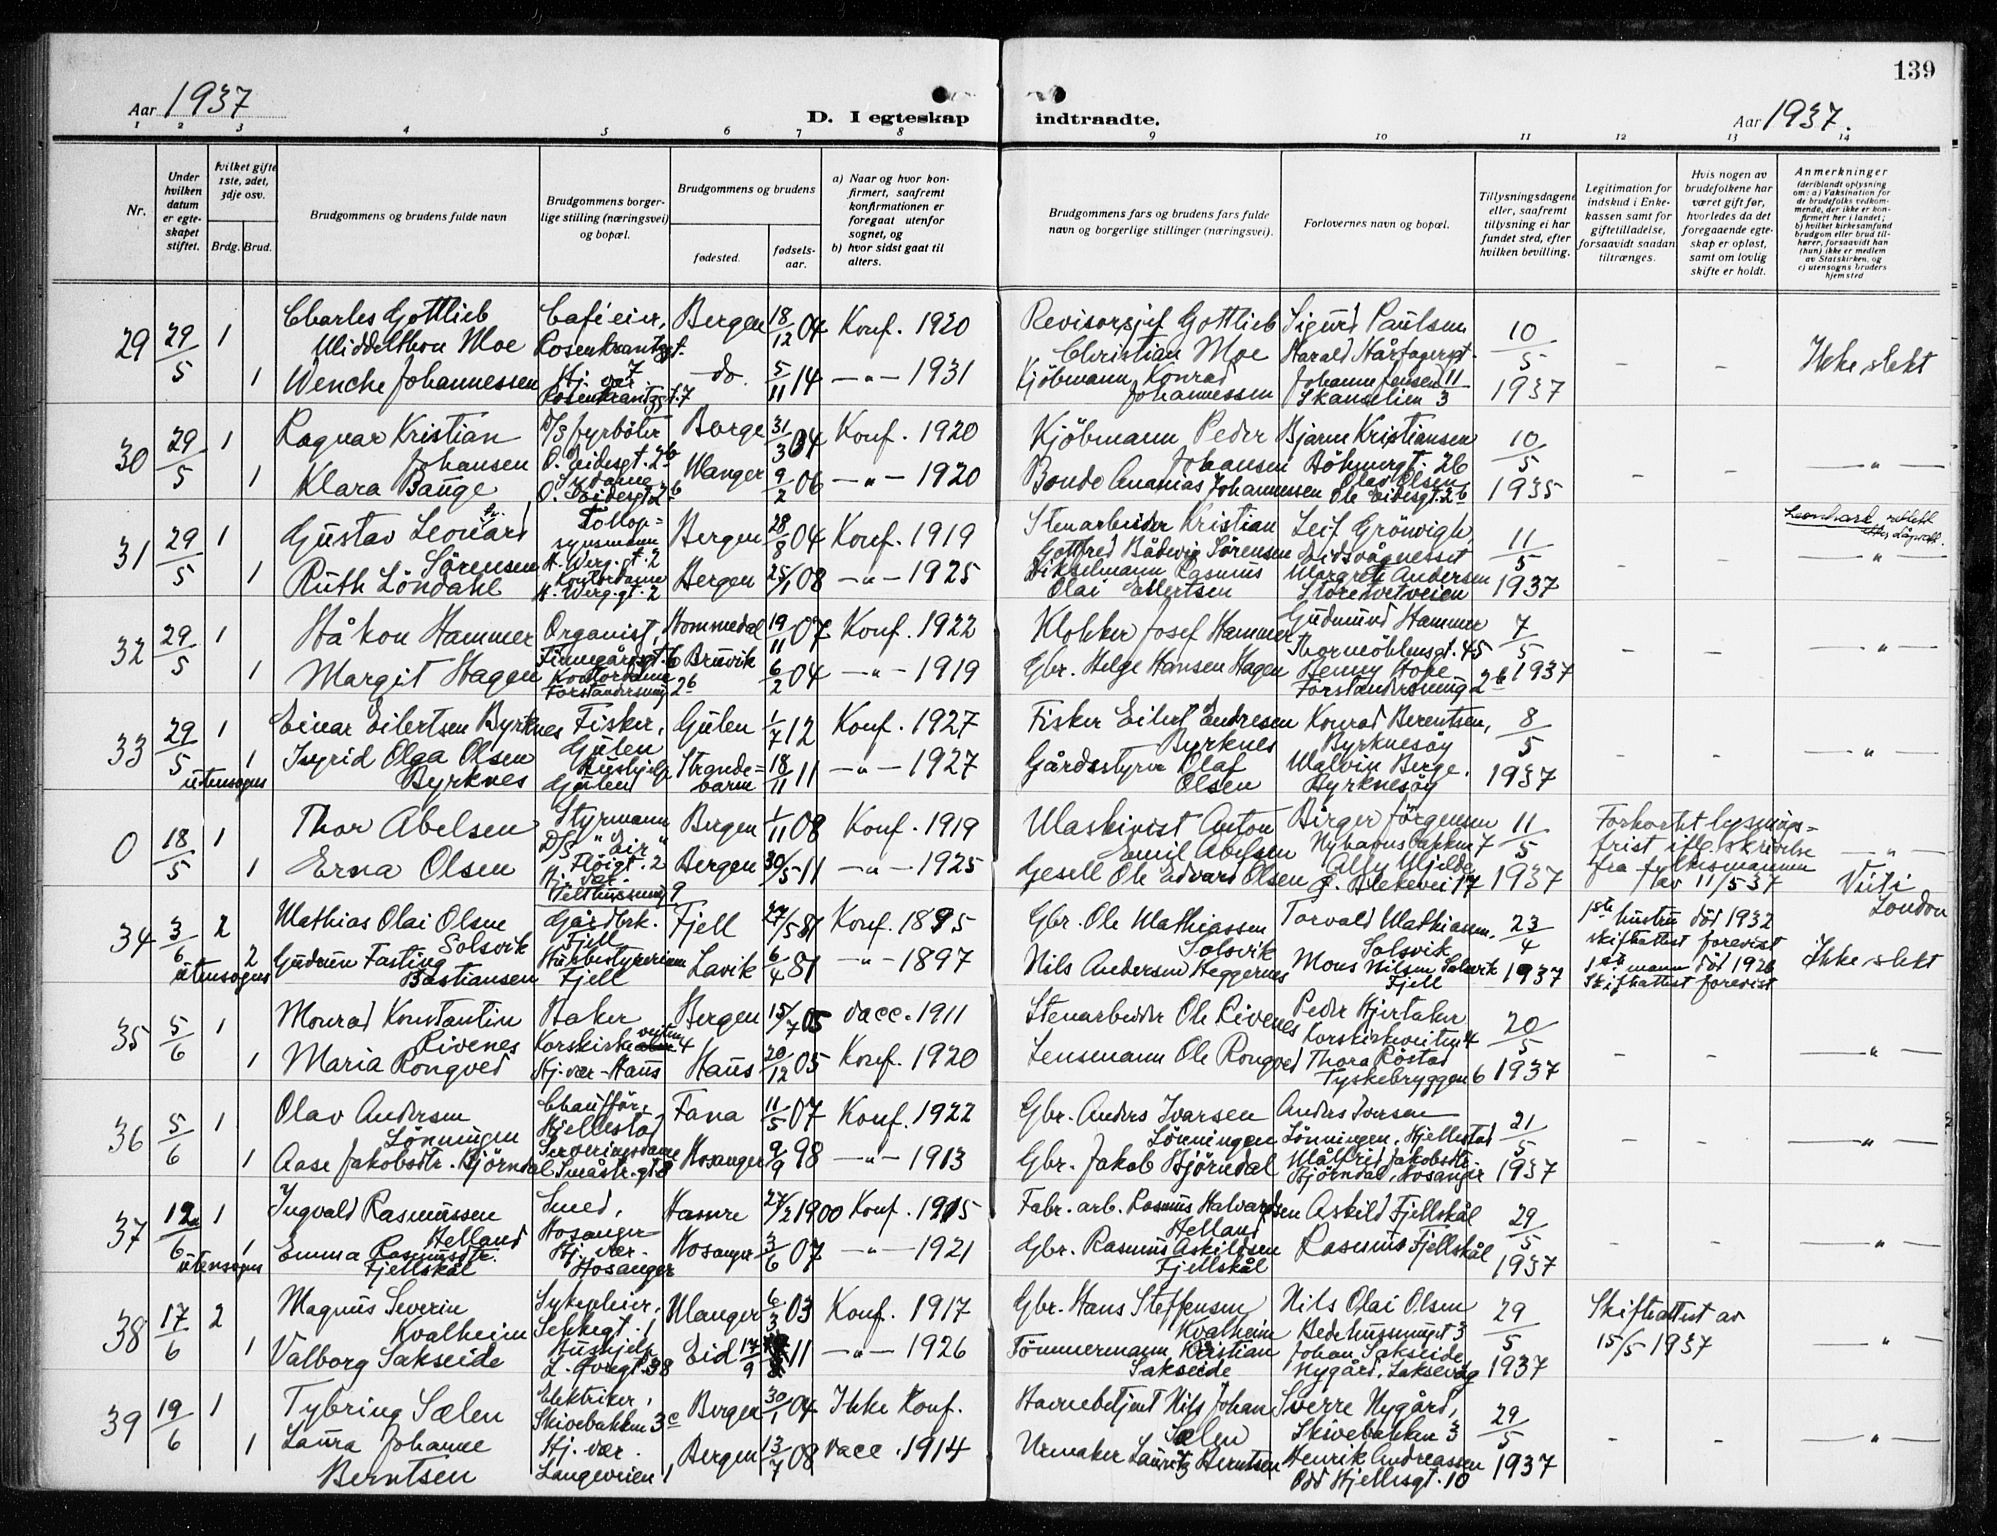 139
Aar 1937
D. I egteskap indtraadte.
Aar 1937.
1 2 3 4 5 6 7 8 9 10 11 12 13 14
Nr.
Under hvilken datum er egteskapet stiftet.
hvilket gifte 1ste, 2det, 3dje osv.
Brdg. Brud.
Brudgommens og brudens fulde navn
Brudgommens borgerlige stilling (næringsvei) og bopæl.
Brudgommens og brudens
fødested.
fødselsaar.
a) Naar og hvor konfirmert, saafremt konfirmationen er foregaat utenfor sognet, og
b) hvor sidst gaat til alters.
Brudgommens fars og brudens fars fulde navn og borgerlige stillinger (næringsvei).
Forlovernes navn og bopæl.
Tillysningsdagene eller, saafremt tillysning ei har fundet sted, efter hvilken bevilling.
Legitimation for indskud i Enkekassen samt for giftetilladelse, forsaavidt saadan tiltrænges.
Hvis nogen av brudefolkene har været gift før, hvorledes da det foregaaende egteskap er opløst, samt om lovlig skifte er holdt.
Anmerkninger
(deriblandt oplysning om: a) Vaksination for de brudefolks vedkommende, der ikke er konfirmert her i landet; b) hvilket kirkesamfund brudgom eller brud tilhører, forsaavidt han (hun) ikke er medlem av Statskirken, og c) utensogns bruders hjemsted
29 29/5 1 Charles Gottlieb Middelthon Moe Cafeeier, Rosenkrantzgt. 7 Bergen 18/12 04 Konf. 1920 Revisorsjef Gottlieb Christian Moe Sigurd Paulsen Harald Hårfagersgt. 11 10/5 1937 - - Ikke slekt
1 Wenche Johannessen Hj. vær. Rosenkrantzgt. 7 do. 5/11 14 -"- 1931 Kjöbmann Konrad Johannessen Johanne Jensen Skanselien 3
30 29/5 1 Ragnar Kristian Johansen D/S fyrböter O. Eidesgt. 26 Borge 31/3 04 Konf. 1920 Kjöbmann Peder Johansen Bjarne Kristiansen Böhmergt. 26 10/5 1935 - - -"-
1 Klara Bauge Sydame O. Eidesgt. 26 Manger 9/2 06 -"- 1920 Bonde Ananias Johannessen Olav Olsen Ole Eidesgt. 26
31 29/5 1 Gustav Leonard Sörensen Tollopsynsmann H. Werg.gt. 2 Bergen 28/8 04 Konf. 1919 Stenarbeider Kristian Gottfred Bådwig Sörensen Leif Grönvigh, Eidsvågnesset 11/5 1937 - - Leonhard -"-
1 Ruth Löndahl Kontordame H. Werg.gt. 2 Bergen 25/1 08 -"- 1925 Rasmus Olai Ellertsen Margrete Andersen Storetvetveien
32 29/5 1 Håkon Hammer Organist, Finnegårdsgt. 6 Hommedal 19/11 07 Konf. 1922 Klokker Josef Hammer Gudmund Hammer Thormöhlensgt. 45 7/5 1937 - - -"-
1 Margit Hagen Kontordame Forstandersmug 26 Bruvik 6/2 04 -"- 1919 Gbr. Helge Hansen Hagen Benny Hope Forstandersmug 26
33 29/5 utensogns 1 Einar Eilertsen Byrknes Fisker, Gulen Gulen 1/7 12 Konf. 1927 Fisker Eilert Endresen Byrknes Konrad Berentsen, Byrknesöy 8/5 1937 - - -"-
1 Ingrid Olga Olsen Byrknes Hushjelp Gulen Strandebarm 18/11 11 -"- 1927 Gårdsstyrer Olaf Olsen Malvin Berge. Byrknesöy
0 18/5 1 Thor Abelsen Styrmann D/S "Eir" Flöigt. 2 Bergen 1/11 08 Konf. 1919 Maskinist Anton Emil Abelsen Birger Jörgensen Nyhavnsbakken 7 11/5 1937 Forkortet lysningsfrist iflg. skrivelse fra fylkesmannen av 11/5 37 -"- Viet i London
1 Erna Olsen Hj. vær. 9 Bergen 30/5 11 -"- 1925 Gesell Ole Edvard Olsen Ø. Blekevei 17
34 3/6 utensogns 2 Mathias Olai Olsen Solsvik Gårdbrk. Fjell Fjell 27/5 81 Konf. 1895 Gbr. Ole Mathiassen Solsvik Torvald Mathiassen. Solsvik 23/4 1937 1ste hustru död 1932 skifteattest forevist Ikke slekt
2 Gudrun Fasting Bastiansen Husbestyrerinne Fjell Lavik 6/4 81 -"- 1897 Nils Andersen Heggernes Mons Nilsen Solsvik Fjell 1ste mann död 1926 Skifteattest forevist
35 5/6 1 Monrad Konstantin Rivenes Baker Korskirkeveiten 4 Bergen 15/7 05 vacc. 1911 Stenarbeider Ole Rivenes Peder Hjertaker Korskirkeveiten 4 20/5 1937 - - -"-
1 Maria Rongved Hj. vær - Haus Haus 20/12 05 Konf. 1920 Lensmann Ole Rongved Thora Röstad Tyskebryggen 6
36 5/6 1 Olav Andersen Lönningen Chaufför, Hjellestad Fana 11/5 07 Konf. 1922 Gbr. Anders Ivarsen Lönningen Anders Iversen Lönningen, Hjellestad 21/5 1937 - - -"-
1 Aase Jakobsdtr. Hjörndal Serveringsdame Småstr.gt. 8 Hosanger 9/9 98 -"- 1913 Gbr. Jakob Hjörndal Målfrid Jakobsdtr. Hjörndal, Hosanger
37 12/6 utensogns 1 Ingvald Rasmussen Helland Smed, Hosanger Hamre 27/2 1900 Konf. 1915 Fabr. arb. Rasmus Halvardsen Helland Askild Fjellskål 29/5 1937 -"-
1 Emma Rasmusdtr. Fjellskål Hj. vær. Hosanger Hosanger 3/6 07 -"- 1921 Gbr. Rasmus Askildsen Fjellskål Rasmus Fjellskål
38 17/6 2 Magnus Severin Kvalheim Sykepleier, Manger 6/3 03 Konf. 1917 Gbr. Hans Steffensen Kvalheim Nils Olai Olsen Bedehussmuget 3 29/5 1937 Skifteattest av 15/5 1937 -"-
1 Valborg Sakseide Hushjelp L. Övregt. 38 Eid 17/9 11 -"- 1926 Tömmermann Kristian Sakseide Johan Sakseide Nygård, Laksevåg
39 19/6 1 Tybring Sælen Elektriker, Skivebakken 3c Bergen 30/1 04 Ikke Konf. Havnebetjent Nils Johan Sælen Sverre Nygård, Skivebakken 3 29/5 1937 - - -"-
1 Laura Johanne Berntsen Hj. vær. Langeveien 1, Bergen 13/7 08 vacc. 1914 Urmaker Lauritz Berntsen Henrik Andreassen Odd Hjellesgt. 10